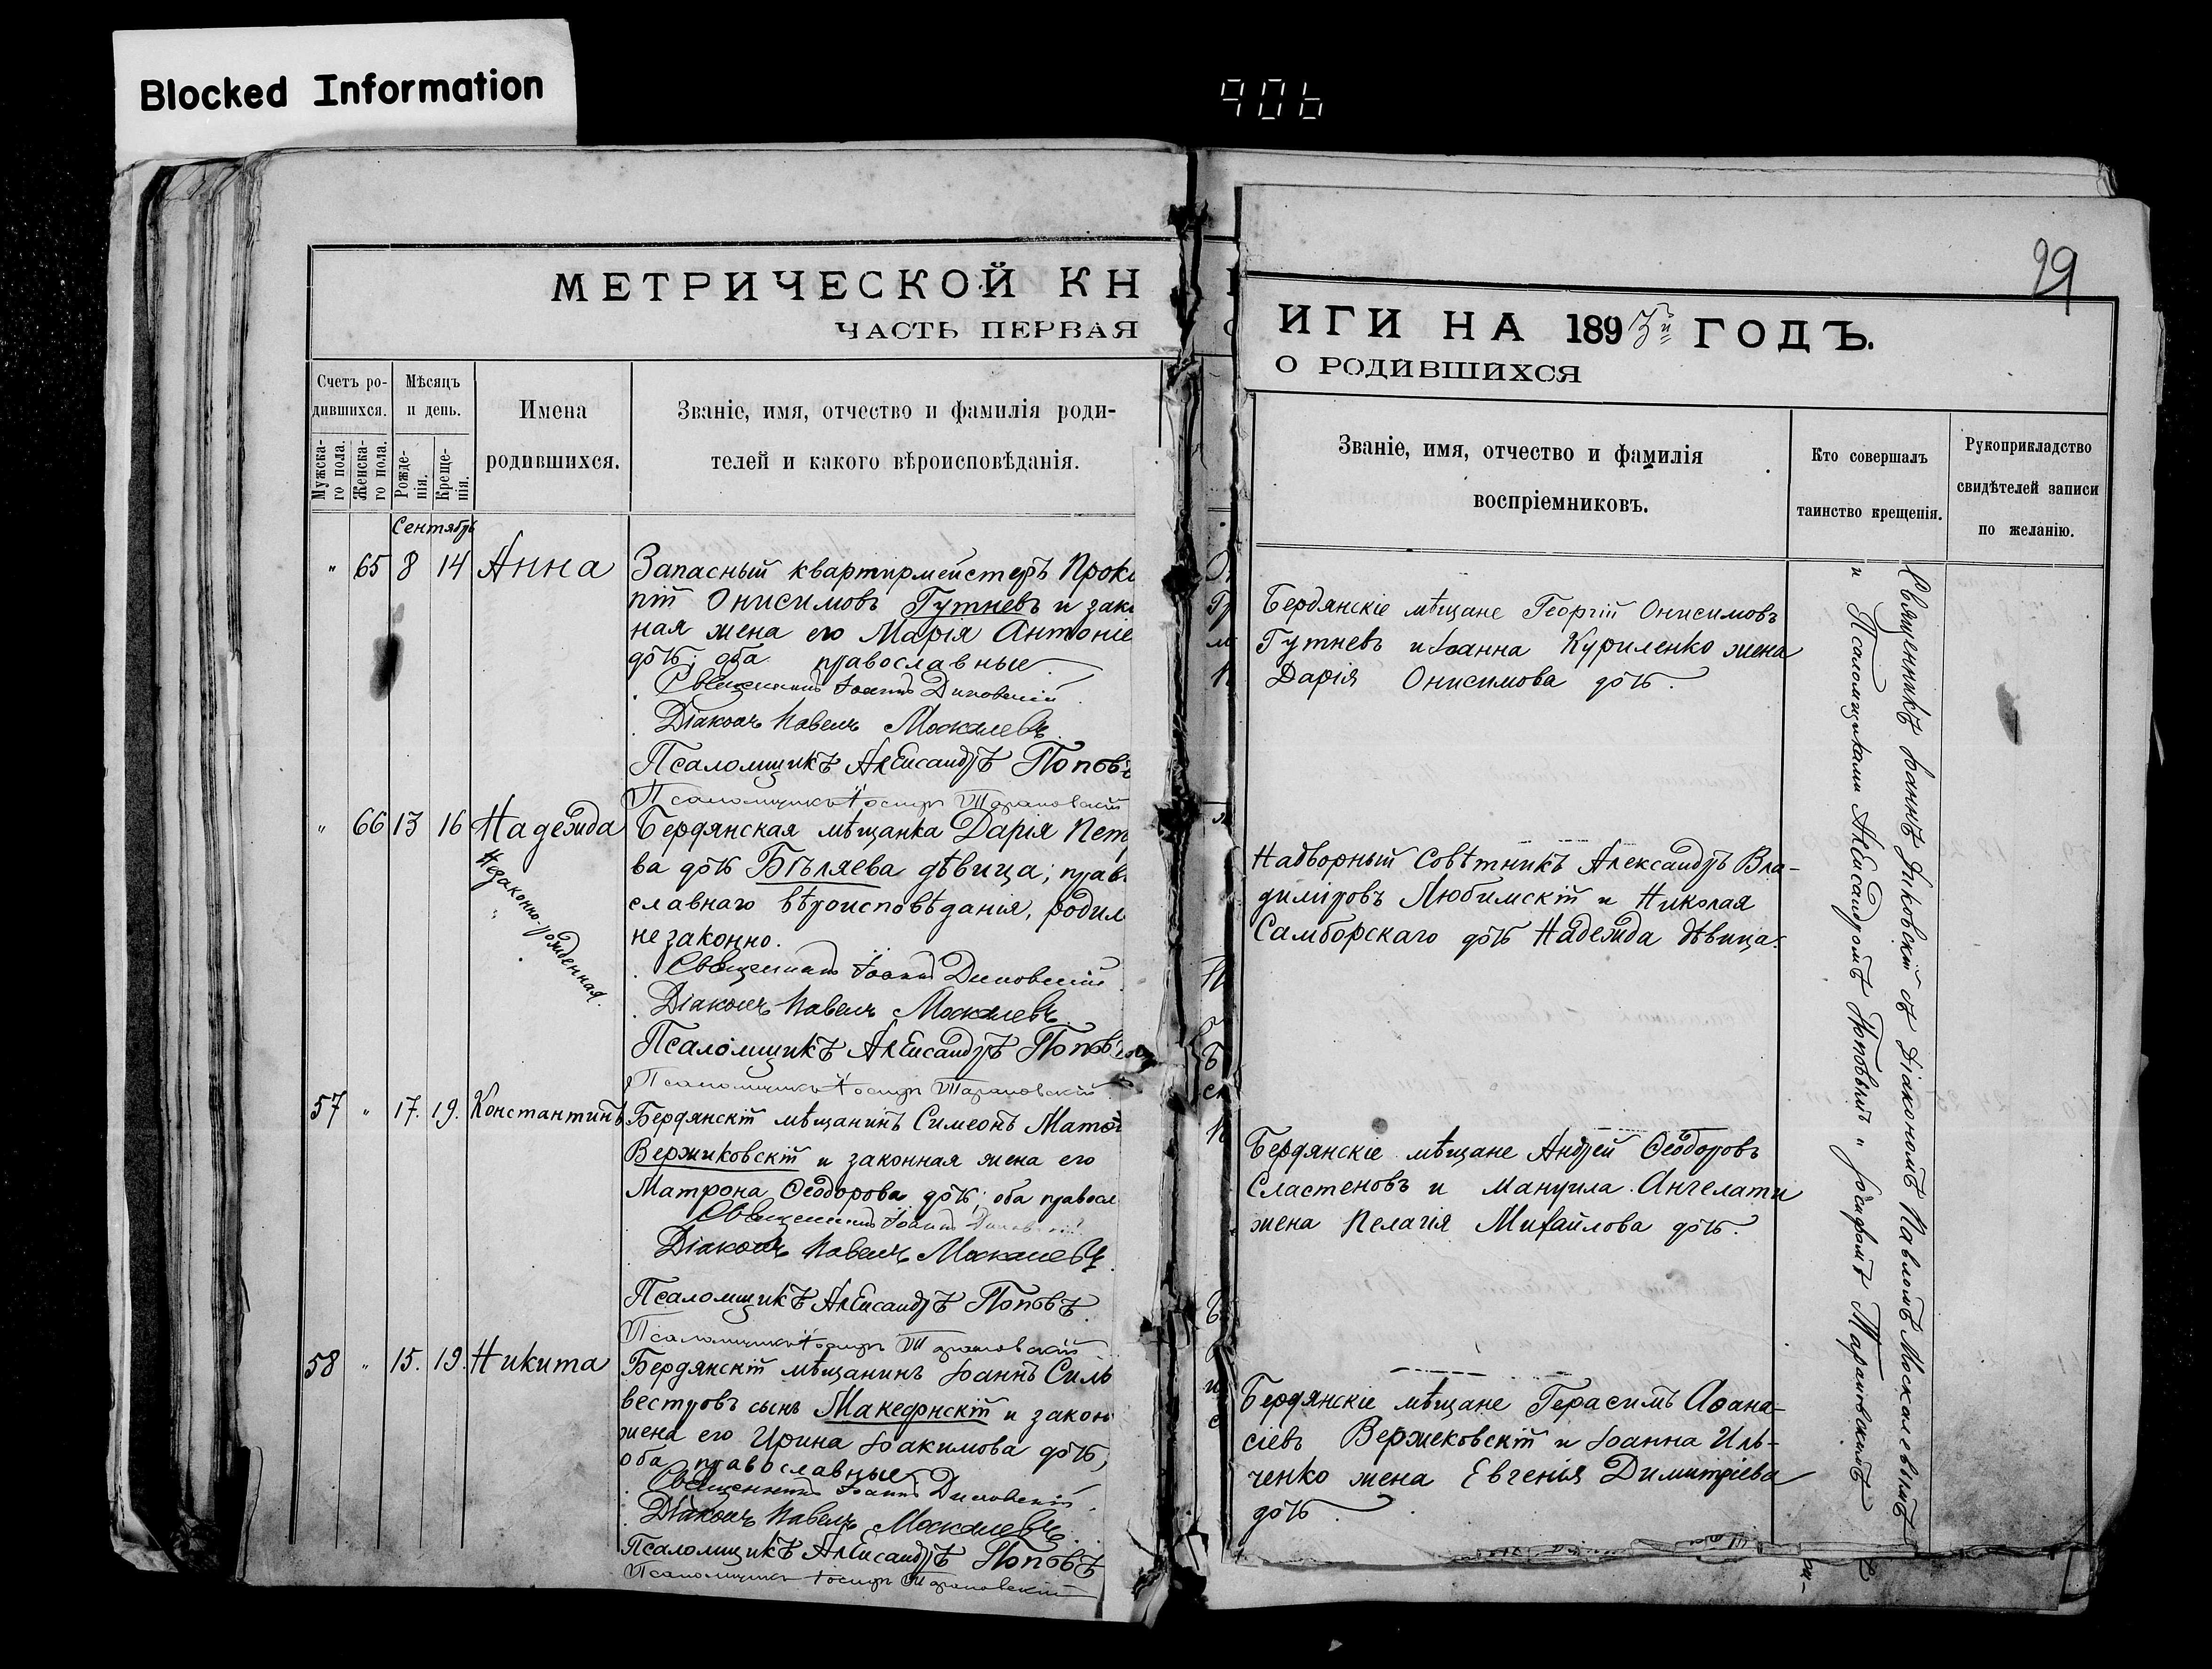 Blocked Information
906
МЕТРИЧЕСКОЙ КН
ЧАСТЬ ПЕРВАЯ
Счетъ ро-
дившихся.
Мужска-
го пола.
Женска-
го пола.
Мѣсяцъ
и день.
Рожде-
нія.
Креще-
нія.
Имена
родившихся.
Званіе, имя, отчество и фамилія роди-
телей и какого вѣроисповѣданія.
Сентябрь
" 65 8 14 Анна
Запасный квартирмейстеръ Проко
пій Онисимовъ Гутневъ и зако
ная жена его Марія Антоніе
дочь; оба православные
Священникъ Іоаннъ
Діаконъ Павелъ Москалевъ
Псаломщикъ Александръ Поповъ
Псаломщикъ Іосифъ Тарановскій
" 66 13 16 Надежда
Незаконно-рожденная.
Бердянская мѣщанка Дарія Пет
ва дочь Бѣляева дѣвица; прав
славнаго вѣроисповѣданія, родил
незаконно.
Священникъ Іоаннъ
Діаконъ Павелъ Москалевъ
Псаломщикъ Александръ Поповъ
Псаломщикъ Іосифъ Тарановскій
57 " 17. 19. Константинъ
Бердянскій мѣщанинъ Симеонъ
Вержиковскій и законная жена его
Матрона Ѳеодорова дочь; оба правосл
Священникъ Іоаннъ
Діаконъ Павелъ Москалевъ
Псаломщикъ Александръ Поповъ
Псаломщикъ Іосифъ Тарановскій
58 " 15. 19. Никита
Бердянскій мѣщанинъ Іоаннъ Силь
вестровъ сынъ и закон
жена его Ирина Іоакимова дочь,
оба православные
Священникъ Іоаннъ
Діаконъ Павелъ Москалевъ
Псаломщикъ Александръ Поповъ
Псаломщикъ Іосифъ Тарановскій
29
ИГИ НА 1893й ГОДЪ.
О РОДИВШИХСЯ
Званіе, имя, отчество и фамилія
воспріемниковъ.
Кто совершалъ
таинство крещенія.
Рукоприкладство
свидѣтелей записи
по желанію.
Бердянскіе мѣщане Георгій Онисимовъ
Гутневъ и Іоанна Куриленко жена
Дарія Онисимова дочь.
Надворный Совѣтникъ Александръ Вла-
диміровъ Любимскій и Николая
Самборскаго дочь Надежда дѣвица.
Бердянскіе мѣщане Андрей Ѳеодоровъ
Сластеновъ и Мануила Ангелати
жена Пелагія Михайлова дочь.
Бердянскіе мѣщане Герасимъ Аѳана-
сіевъ Вержековскій и Іоанна Иль-
ченко жена Евгенія Димитріева
дочь.
Священникъ Іоаннъ съ Діакономъ Павломъ Москалевымъ
и Псаломщиками Александромъ Поповымъ и Іосифомъ Тарановскимъ